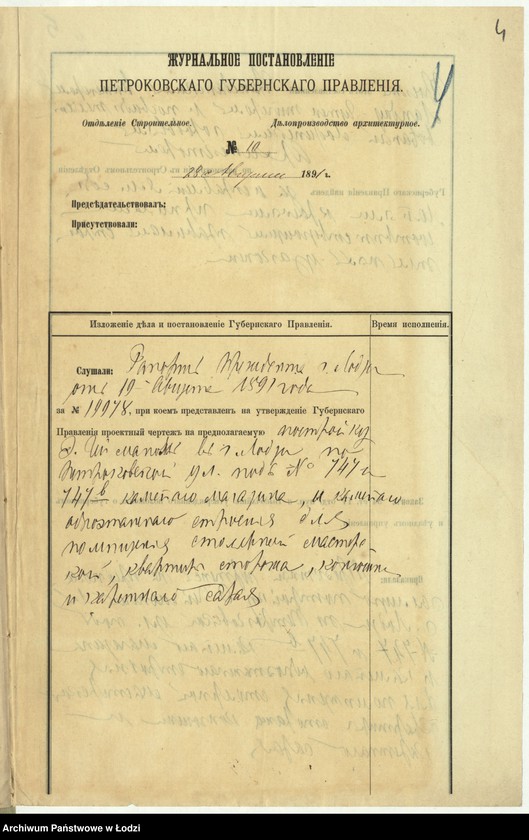 4
ЖУРНАЛЬНОЕ ПОСТАНОВЛЕНІЕ
ПЕТРОКОВСКАГО ГУБЕРНСКАГО ПРАВЛЕНІЯ.
Отдѣленіе Строительное. Дѣлопроизводство архитектурное.
№ 10
28 Августа 1891 г.
Предсѣдательствовалъ:
Присутствовали:
Изложеніе дѣла и постановленіе Губернскаго Правленія. Время исполненія.
Слушали: Рапортъ Президента г. Лодзи
отъ 19 Августа 1891 года
за № 19978, при коемъ представленъ на утвержденіе Губернскаго
Правленія проектный чертежъ на предполагаемую постройку
въ г. Лодзи по
Петроковской ул. подъ № 747а
747b каменнаго магазина, и каменнаго
одноэтажнаго строенія для
помѣщенія столярной мастер
ской, квартиры сторожа, конюшни
и каретнаго сарая
Archiwum Państwowe w Łodzi